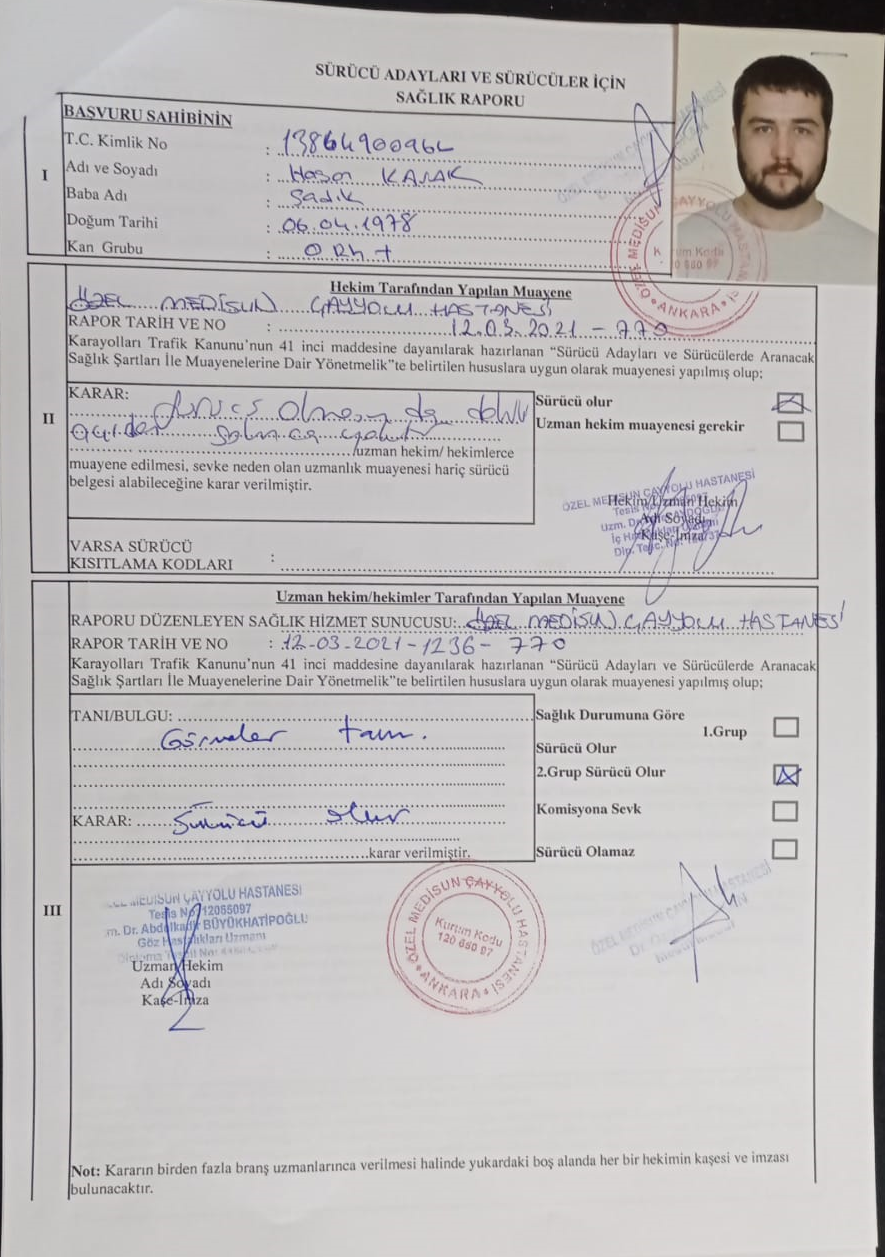 SÜRÜCÜ ADAYLARI VE SÜRÜCÜLER İÇİN
SAĞLIK RAPORU
BAŞVURU SAHİBİNİN
I
T.C. Kimlik No :
Adı ve Soyadı : Hasan
Baba Adı : Sadık
Doğum Tarihi : 06.04.1978
Kan Grubu : O Rh +
ÖZEL MEDİSUN ÇAYYOLU HASTANESİ
ANKARA
Hekim Tarafından Yapılan Muayene
ÖZEL MEDİSUN ÇAYYOLU HASTANESİ
RAPOR TARİH VE NO : 12.03.2021 - 770
Karayolları Trafik Kanunu'nun 41 inci maddesine dayanılarak hazırlanan "Sürücü Adayları ve Sürücülerde Aranacak
Sağlık Şartları İle Muayenelerine Dair Yönetmelik"te belirtilen hususlara uygun olarak muayenesi yapılmış olup;
II
KARAR:
/uzman hekim/ hekimlerce
muayene edilmesi, sevke neden olan uzmanlık muayenesi hariç sürücü
belgesi alabileceğine karar verilmiştir.
Sürücü olur
Uzman hekim muayenesi gerekir
ÖZEL MEDİSUN ÇAYYOLU HASTANESİ
Hekim/Uzman Hekim
Adı Soyadı
Kaşe-İmza
VARSA SÜRÜCÜ
KISITLAMA KODLARI :
Uzman hekim/hekimler Tarafından Yapılan Muayene
RAPORU DÜZENLEYEN SAĞLIK HİZMET SUNUCUSU: ÖZEL MEDİSUN ÇAYYOLU HASTANESİ
RAPOR TARİH VE NO : 12-03-2021-1236-770
Karayolları Trafik Kanunu'nun 41 inci maddesine dayanılarak hazırlanan "Sürücü Adayları ve Sürücülerde Aranacak
Sağlık Şartları İle Muayenelerine Dair Yönetmelik"te belirtilen hususlara uygun olarak muayenesi yapılmış olup;
TANI/BULGU:
Görmeler tam.
KARAR: Sürücü olur
karar verilmiştir.
Sağlık Durumuna Göre
1.Grup
Sürücü Olur
2.Grup Sürücü Olur
Komisyona Sevk
Sürücü Olamaz
III
MEDİSUN ÇAYYOLU HASTANESİ
Tesis No 12065097
BÜYÜKHATİPOĞLU
Göz Hastalıkları Uzmanı
Uzman Hekim
Adı Soyadı
Kaşe-İmza
ÖZEL MEDİSUN ÇAYYOLU HASTANESİ
Kurum Kodu
120 650 97
ANKARA
Not: Kararın birden fazla branş uzmanlarınca verilmesi halinde yukardaki boş alanda her bir hekimin kaşesi ve imzası
bulunacaktır.